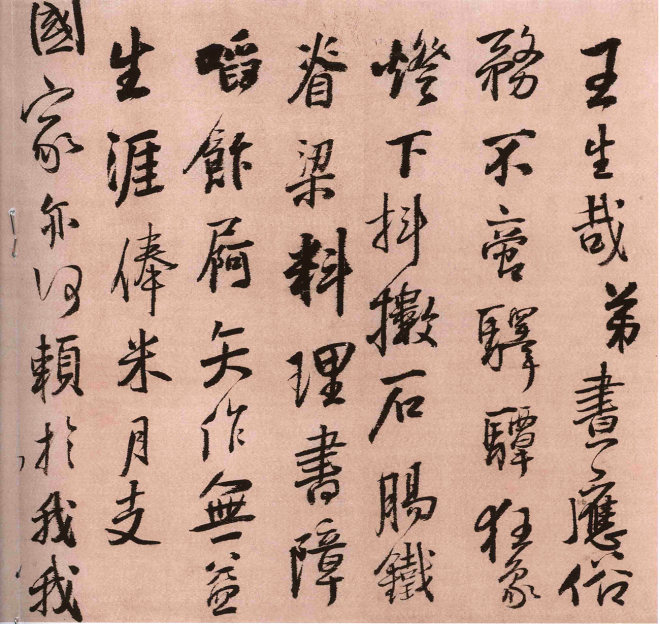 王生哉弟晝〻應俗
務不啻驛驔狂象
燈下抖擻石腸鐵
脊梁料理書障
啗飯屙矢作無益
生涯俸米月支
國家亦何賴於我我